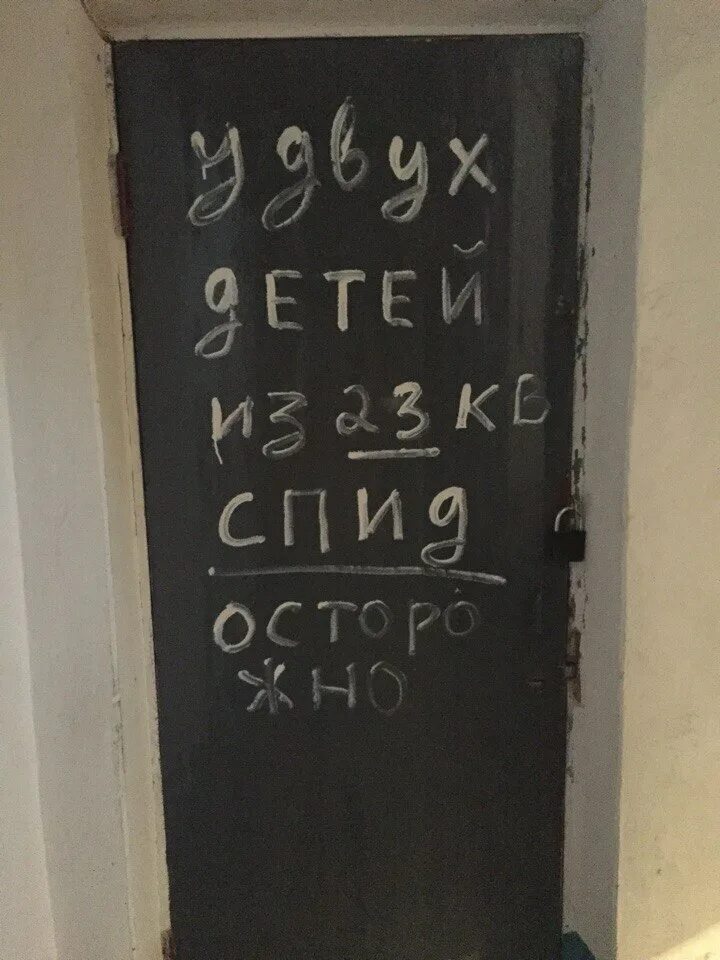 у двух
детей
из 23 кв
спид
осторо
жно